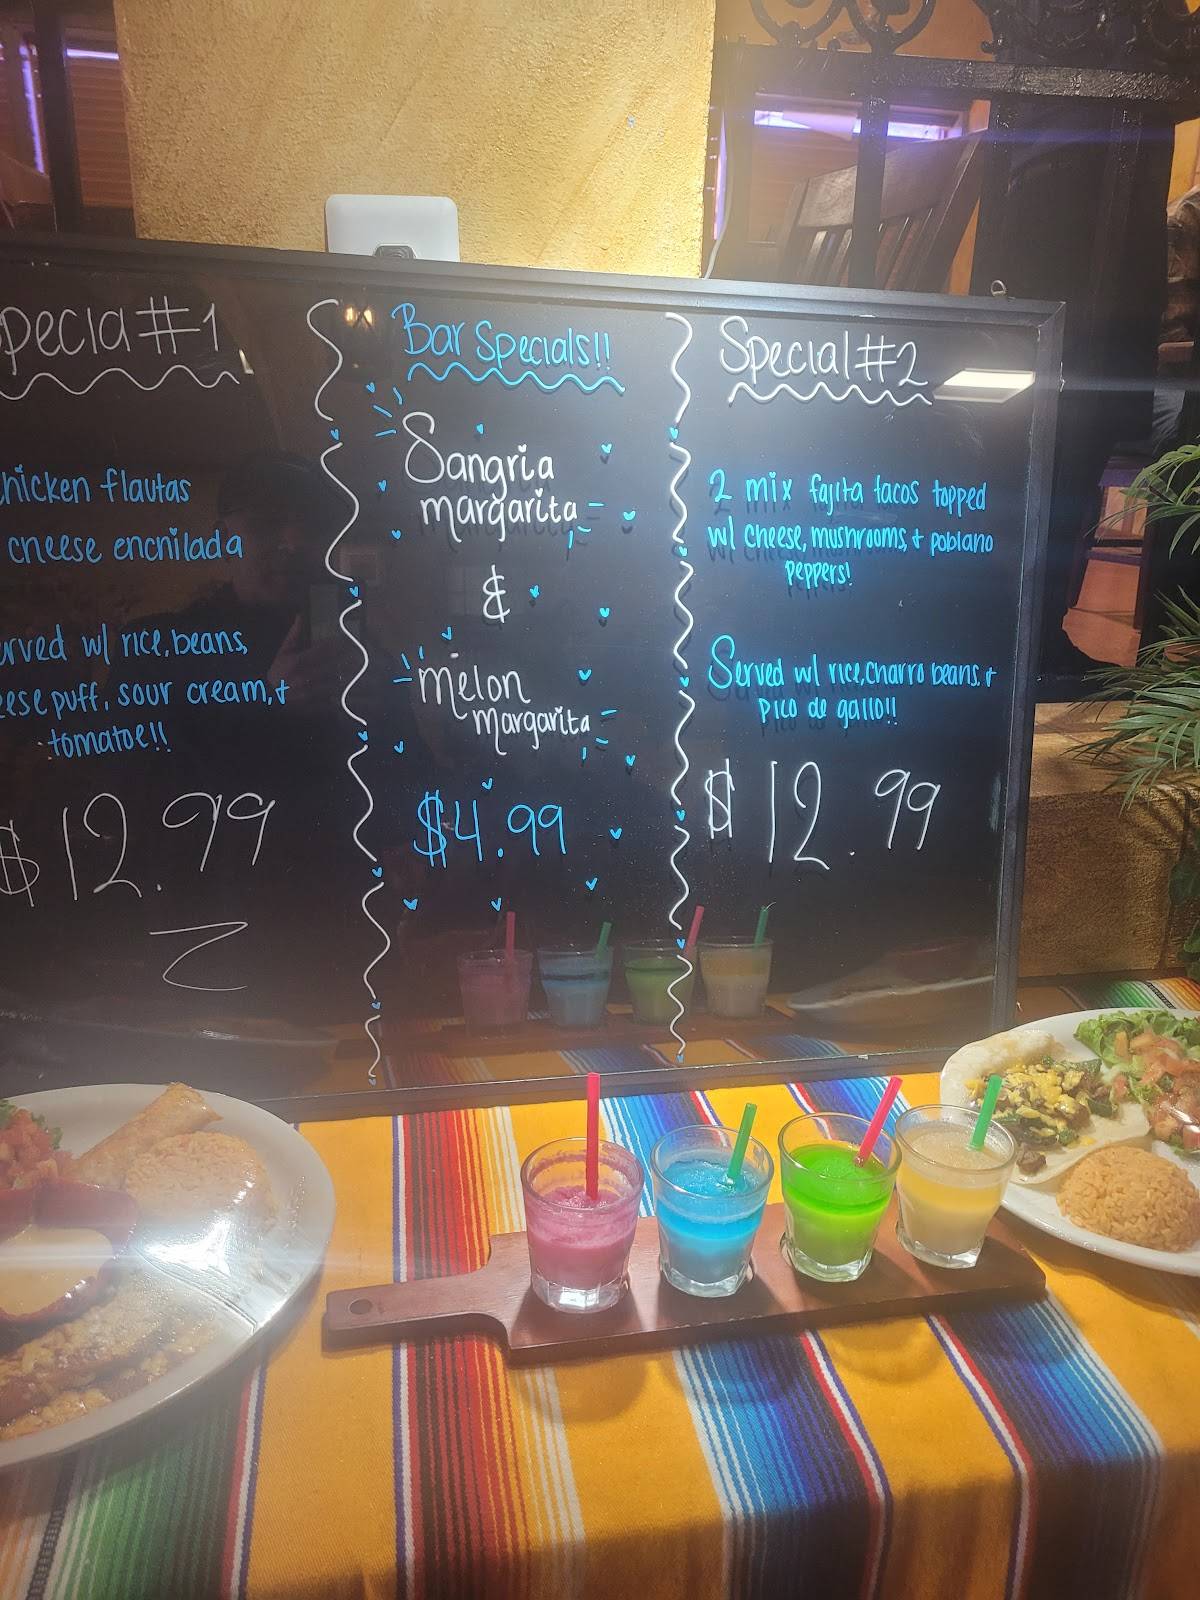 pecial #1
hicken flautas
cheese enchilada
erved w/ rice, beans,
eese puff, sour cream, +
tomatoe!!
$12.99
Bar Specials!!
Sangria
margarita
&
Melon
margarita
$4.99
Special #2
2 mix fajita tacos topped
w/ cheese, mushrooms, + poblano
peppers!
Served w/ rice, charro beans, +
pico de gallo!!
$12.99